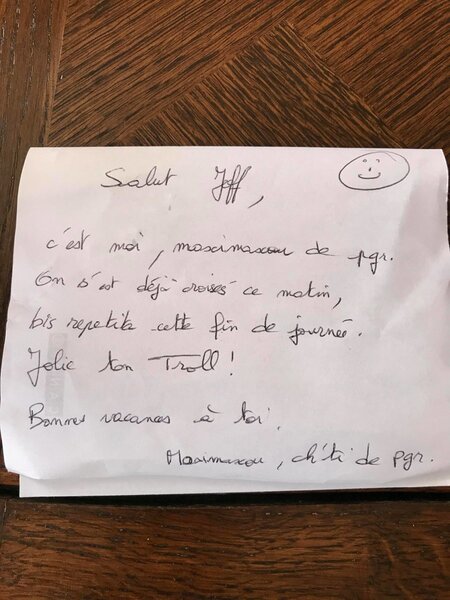 Salut Jeff,
c'est moi, maximaxou de pgr.
On s'est déjà croisés ce matin,
bis repetita cette fin de journée.
Jolie ton Troll !
Bonnes vacances à toi.
Maximaxou, ch'ti de pgr.